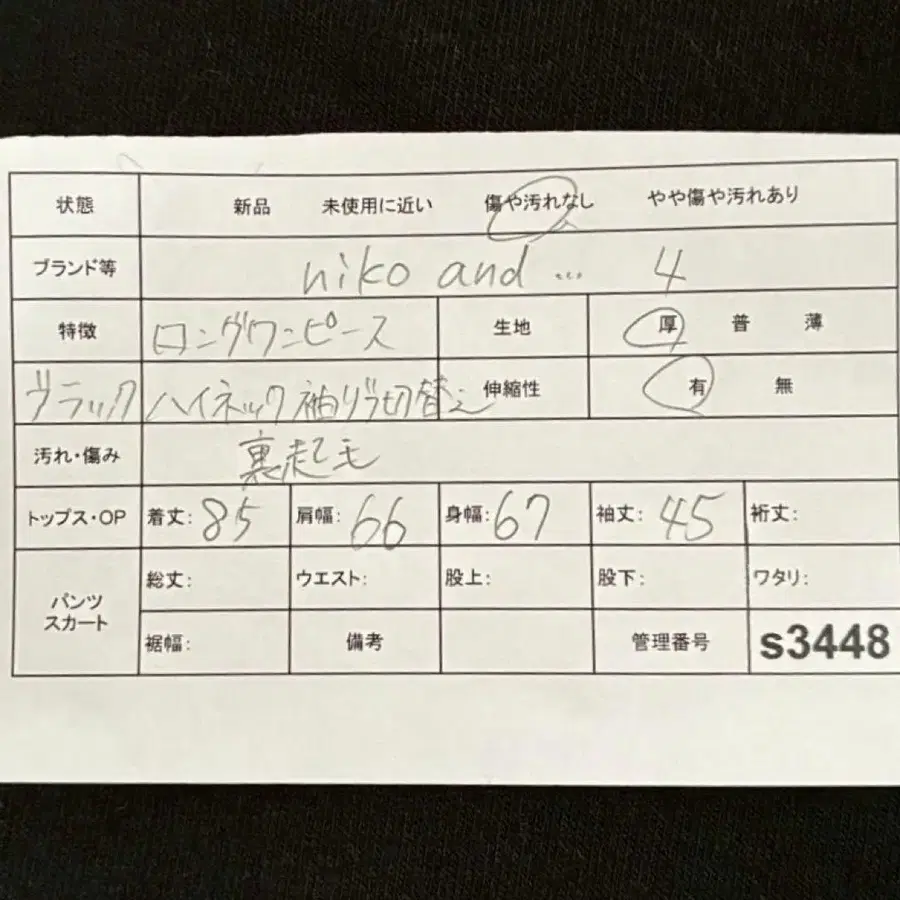 状態 新品 未使用に近い 傷や汚れなし やや傷や汚れあり
ブランド等 niko and ... 4
特徴 ロングワンピース 生地 厚 普 薄
ブラック ハイネック 袖リブ切替え 伸縮性 有 無
汚れ・傷み 裏起毛
トップス・OP 着丈: 85 肩幅: 66 身幅: 67 袖丈: 45 裄丈:
パンツ スカート 総丈: ウエスト: 股上: 股下: ワタリ:
裾幅: 備考 管理番号 s3448